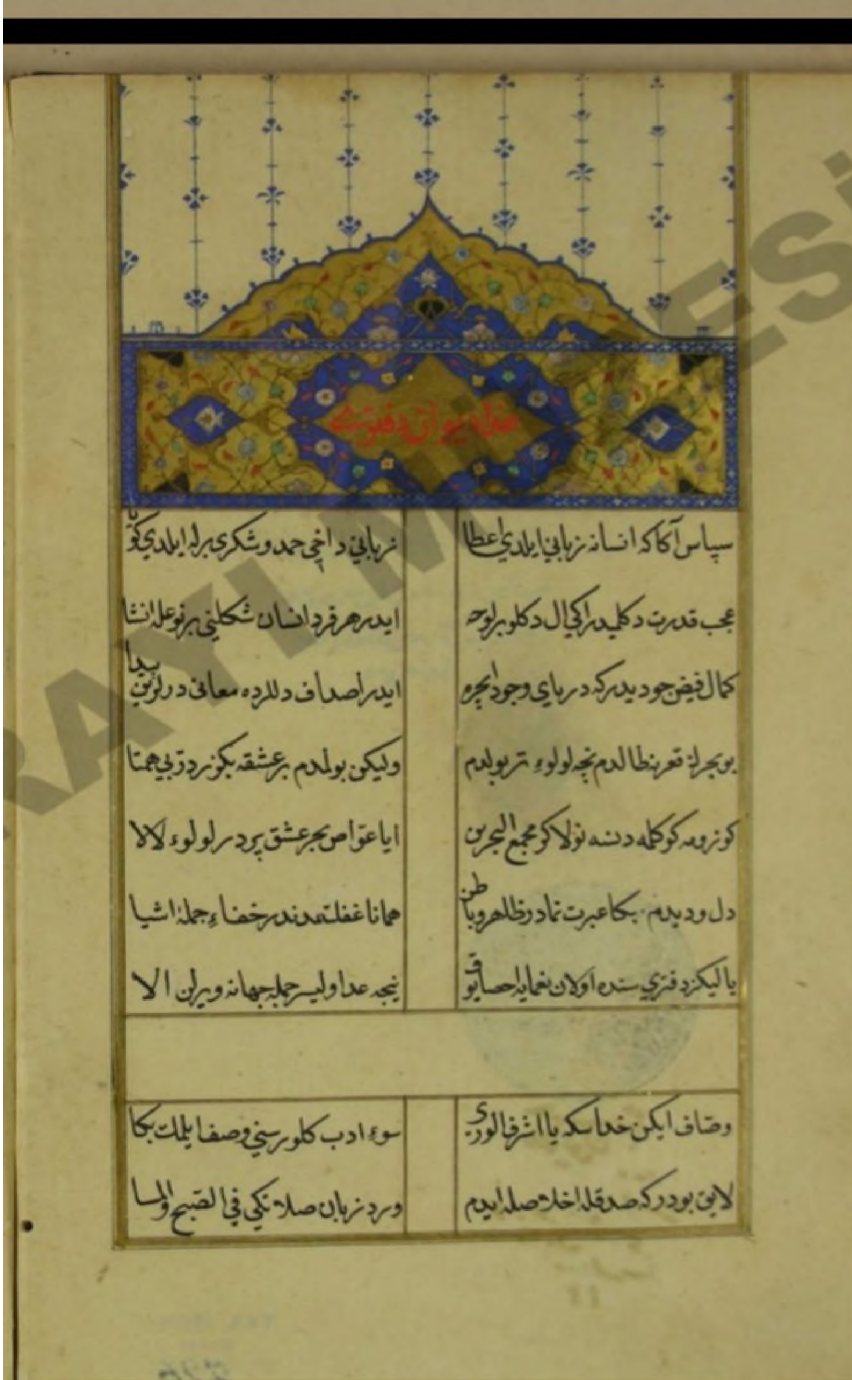 سپاس آكا كه انسانه زبانی ایلدی اعطا
زبانی داخی حمد و شكری برله ایلدی كویا
عجب قدرت دكلمیدر اكی ال دكلو بر لوحه
ایدر هر فرد انسان شكلنی بر نوعله انشا
كمال فیض جودیدر كه دریای وجود ایچره
ایدر اصداف دللرده معانی درلرین پیدا
بو بحرك قعرینه طالدم نچه لولوء تر بولدم
ولیكن بولمدم بر عشقه بكزر در بی همتا
كوزومه كوكلمه دنسه نولا كر مجمع البحرین
ایا غواص بحر عشق پر در لولوء لالا
دل و دیدم بكا عبرت نمادر ظاهر و باطن
همانا غفلتمدندر خفاء جملهٔ اشیا
یا لیكز دفتری سنده اولان نعمایه احصا یوق
نیجه عد اولیسر جمله جهانه ویرلن الا
وصاف ایكن خدا سكه یا اشرف الوری
سوء ادب كلور سنی وصف ایلمك بكا
لایق بودر كه صدقله اخلاصله ایدم
ورد زبان صلاتكی فی الصبح والمسا
SARAYI MÜZESİ